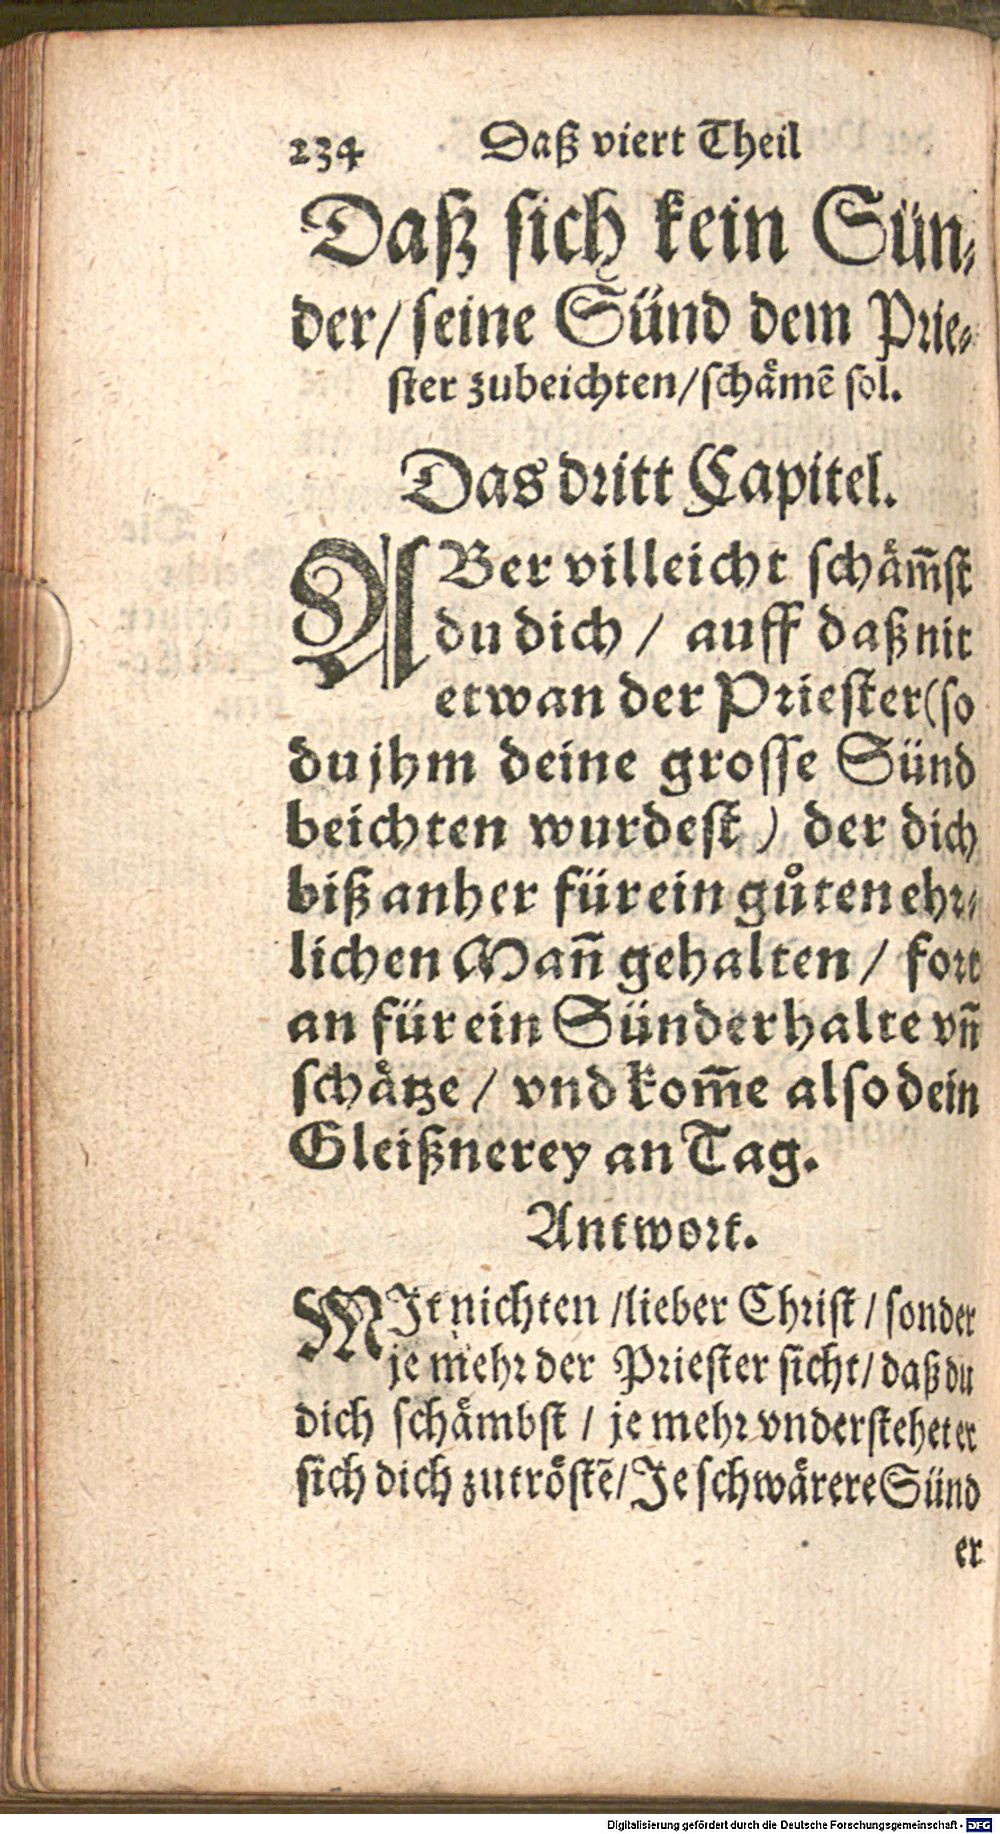 234 Daß viert Theil
Daß sich kein Sün⸗
der/ seine Sünd dem Prie⸗
ster zubeichten/ schaͤmẽ sol.
Das dritt Capitel.
ABer villeicht schaͤm̃st
du dich / auff daß nit
etwan der Priester (so
du jhm deine grosse Sünd
beichten wurdest) der dich
biß anher für ein guͦten ehr⸗
lichen Mañ gehalten / fort
an für ein Sünder halte vñ
schaͤtze / vnd kom̃e also dein
Gleißnerey an Tag.
Antwort.
MIt nichten /lieber Christ / sonder
je mehr der Priester sicht/ daß du
dich schaͤmbst / je mehr vnderstehet er
sich dich zutroͤstẽ/ Je schwaͤrere Sünd
er
Digitalisierung gefördert durch die Deutsche Forschungsgemeinschaft - DFG